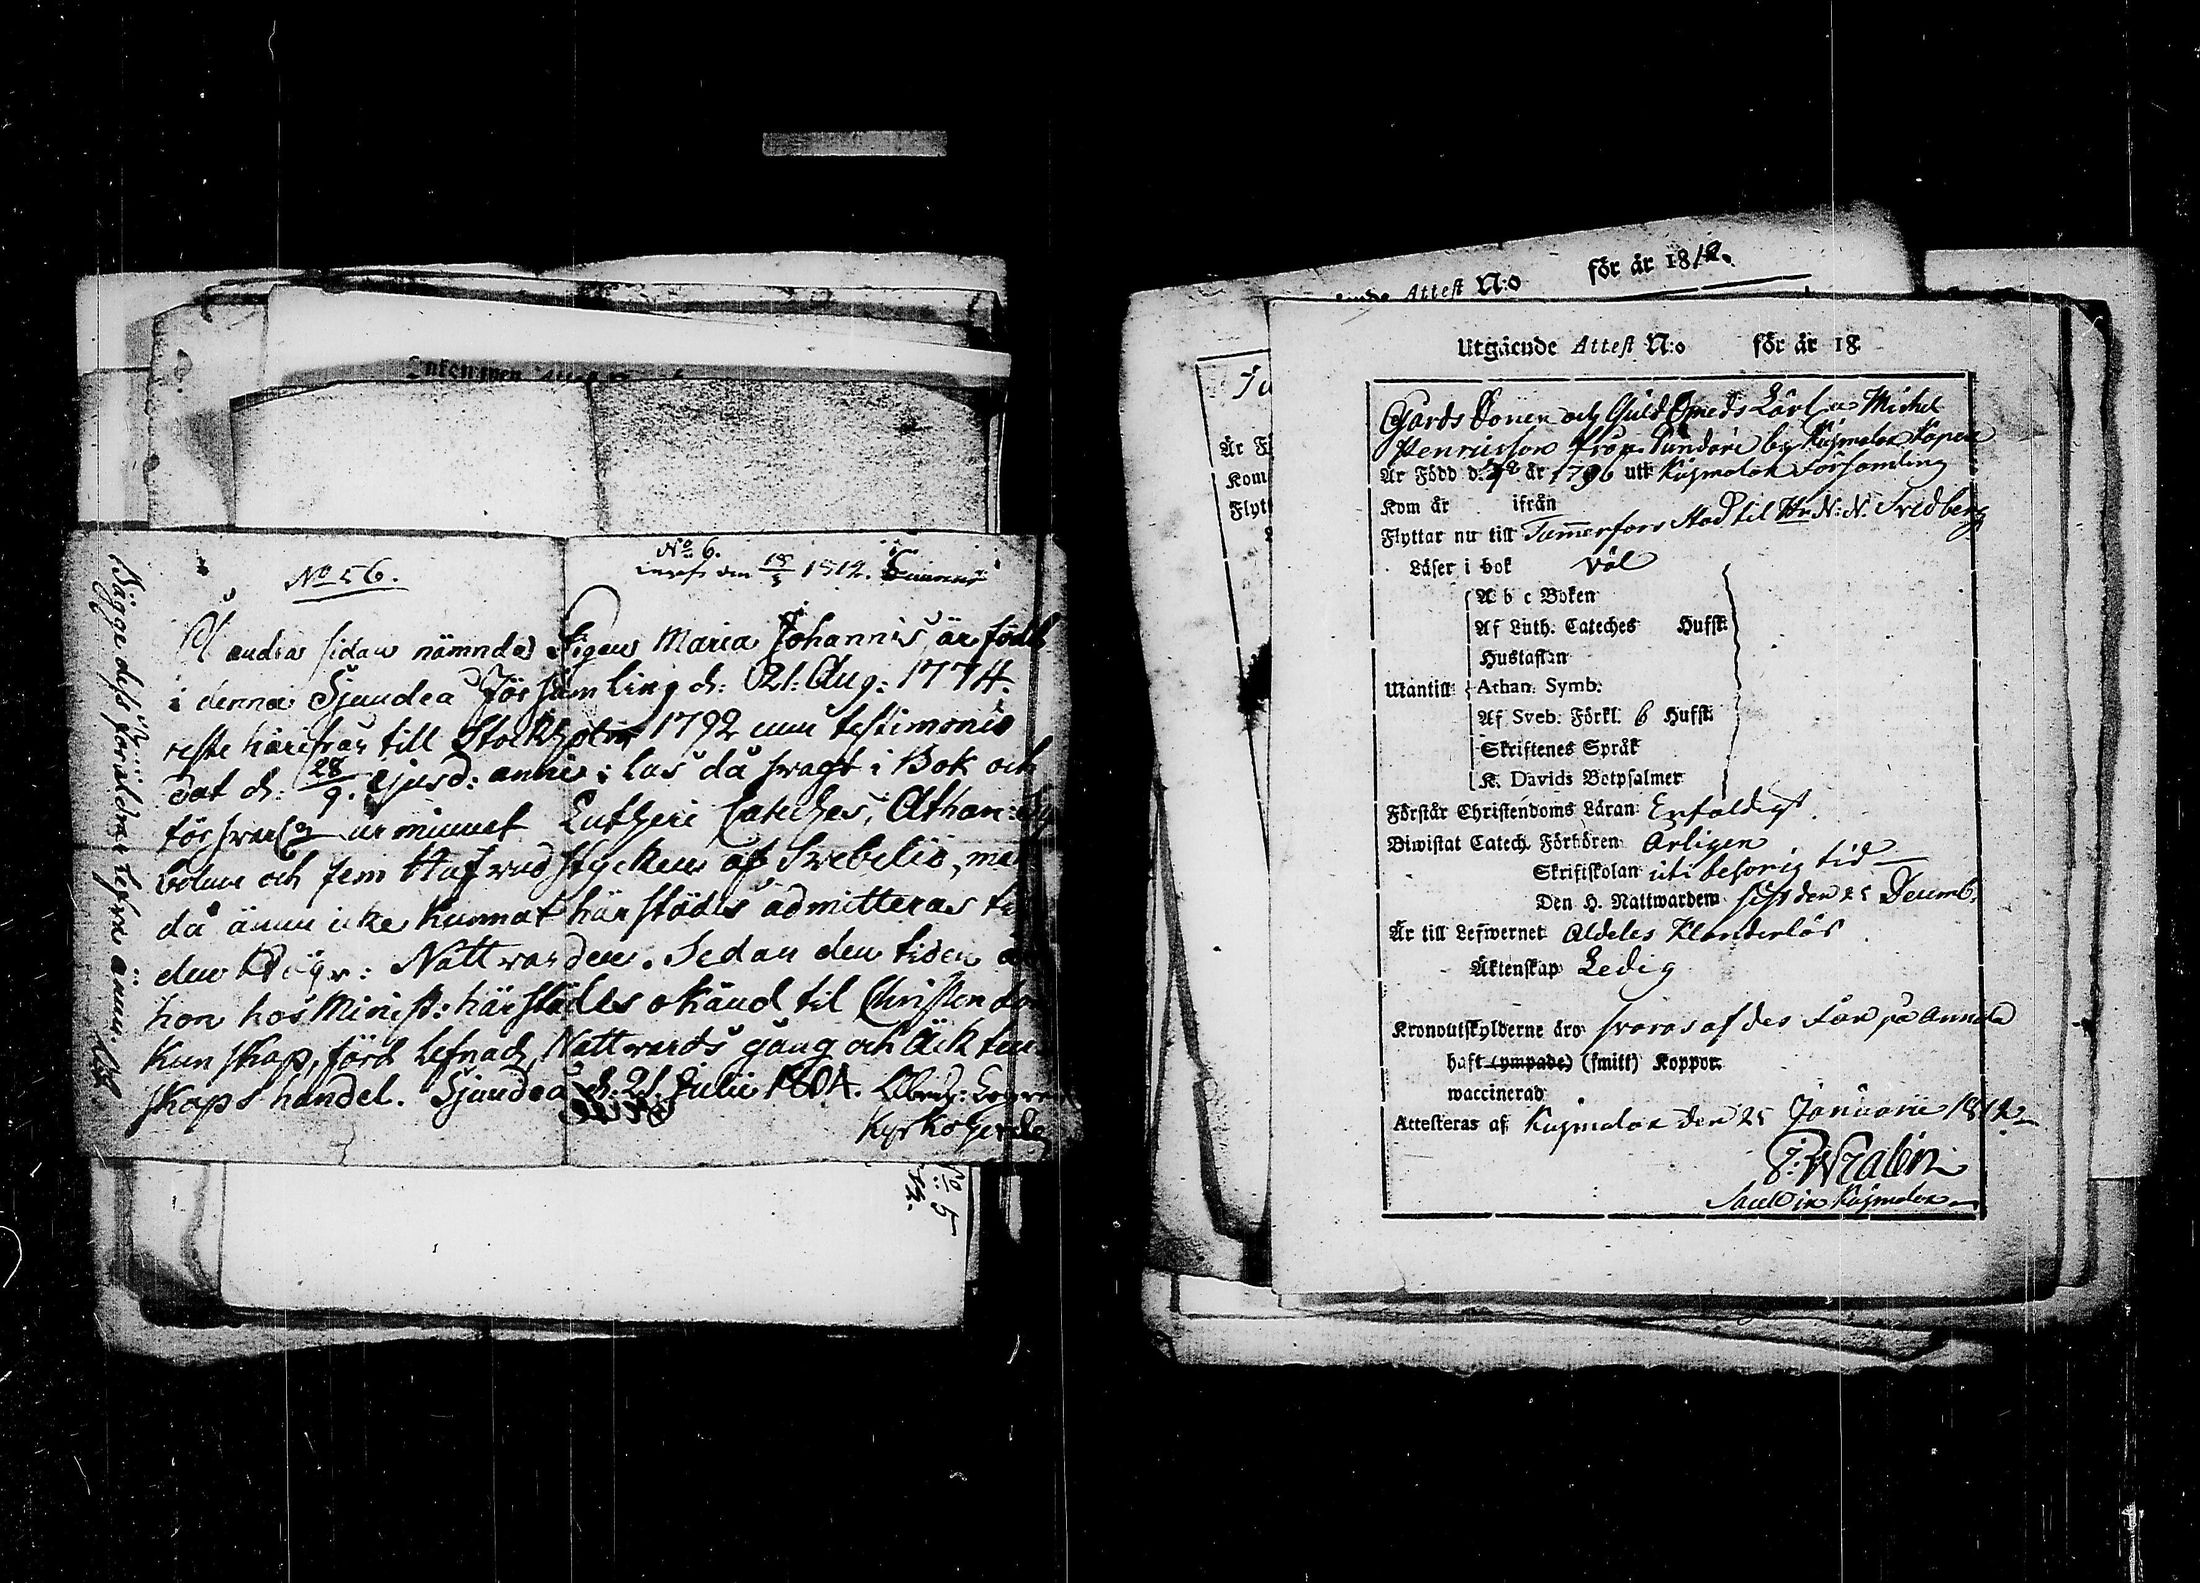 No 56.
No 6.
den 18/5 1812.
Å andra sidan nämnda Pigan Maria Johannis är född
i denna Sjundeå Församling d: 21: Aug: 1774.
reste härifrån till Stockholm 1792 med testimonio
dat d. 28/9. ejusd: anni; las då svagt i Bok och
försvarl: ur minnet Lutheri Cateches, Athan:
bolum och fem Hufvudstycken af Svebelio,
då ännu icke kunnat härstädes admitteras
den Högv: Nattvarden. Sedan den tiden
hon hos Minist: härstädes okänd til Christendoms
kunskap, förd lefnad, Nattvards gång och Äkten
skaps handel. Sjundeå d: 21. Julii 1804.
Kyrkoherde
Bägge dess föräldrar lefva ännu.
No 5
för år 1812.
Attest N:o
Utgående Attest N:o för år 18
Gårds Sonen och GuldSmeds Lärl:n Michel
Henricsson från by Kåpela
Är Född d. år 1796 uti Kusmola Församling
Kom år ifrån
Flyttar nu till Tammerfors Stad til Hr N: N. Svedberg
Läser i bok väl
A b c Boken
Af Luth: Cateches Hufst:
Hustaflan
Utantill: Athan: Symb:
Af Sveb: Förkl. 6 Hufst:
Skriftenes Språk
K. Davids Botpsalmer
Förstår Christendoms Läran: Enfaldigt
Biwistat Catech. Förhören: Årligen
Skriftskolan: uti behörig tid
Den H. Nattwarden: sist den 25 Decemb.
Är till Lefwernet: Aldeles Klanderlös
Äktenskap: Ledig
Kronoutskylderne äro: svaras af des Far på
haft (ympade) (smitt) Koppor.
waccinerad
Attesteras af: den 25 Januarii 1812